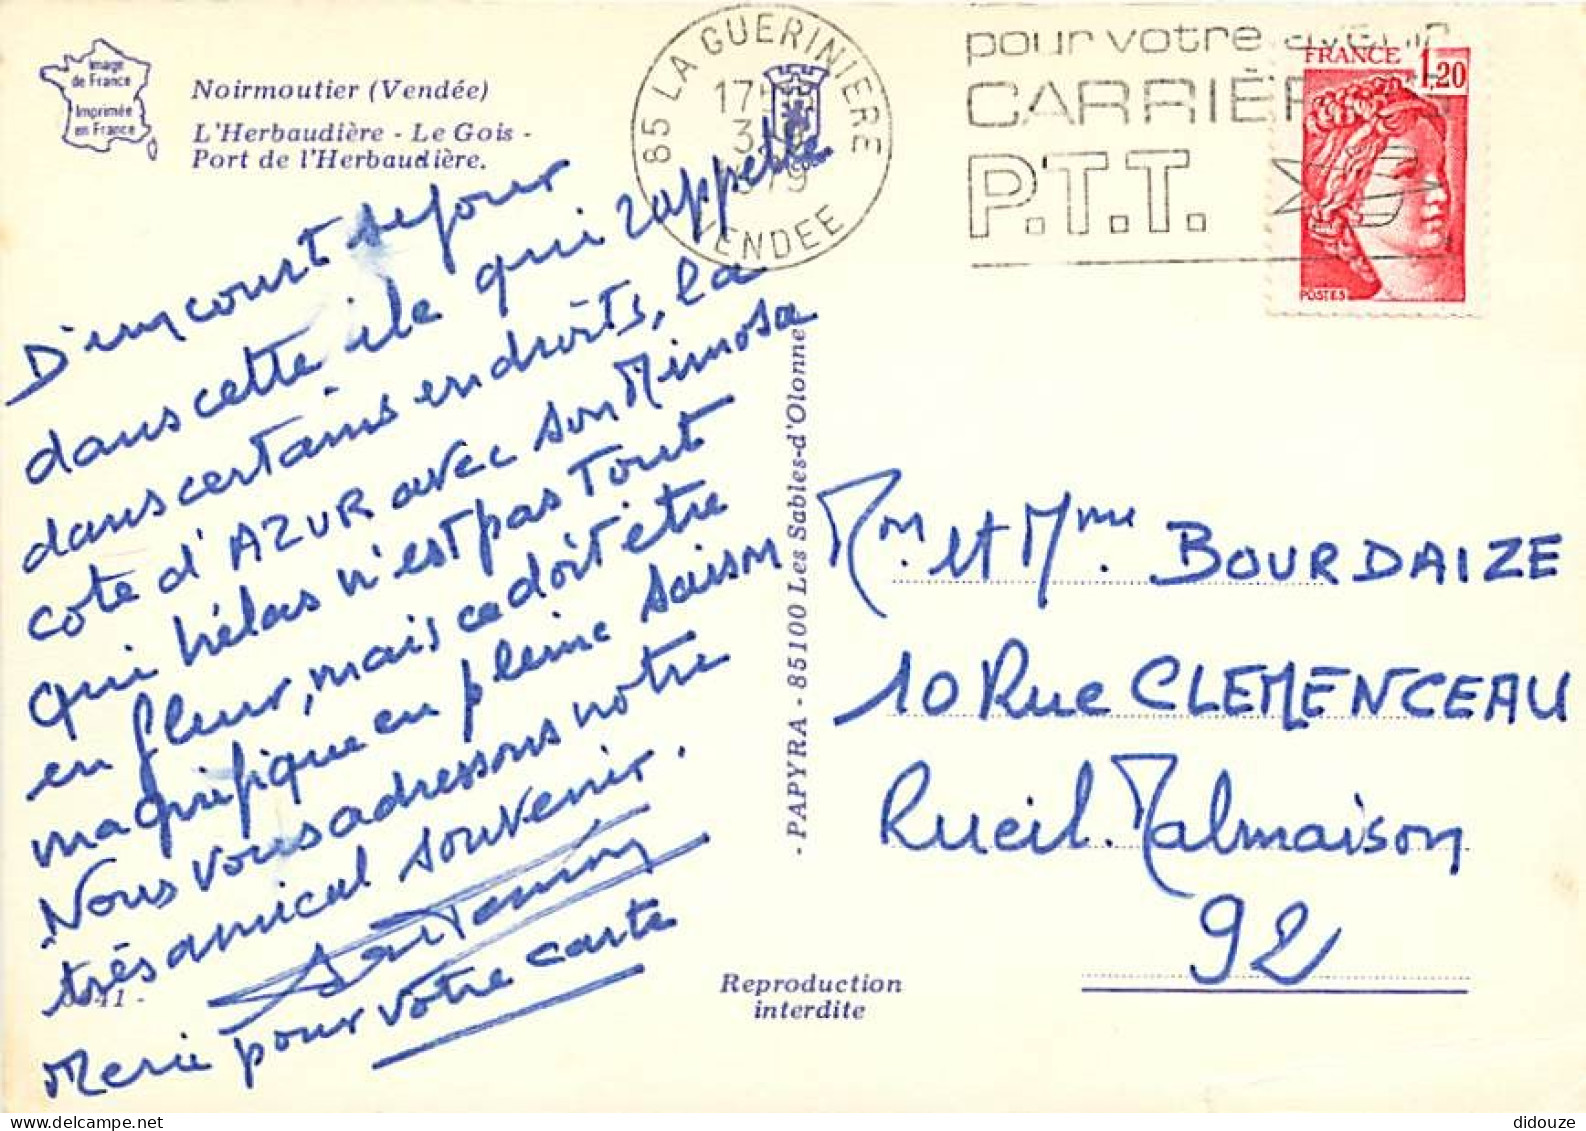 Image
de France
Imprimée
en France
Noirmoutier (Vendée)
L'Herbaudière - Le Gois -
Port de l'Herbaudière.
85 LA GUERINIERE
17H
3
1979
VENDEE
pour votre avenir
CARRIÈRES
P.T.T.
FRANCE 1,20
POSTES
D'un court séjour
dans cette ile qui rappelle
dans certains endroits, la
cote d'AZUR avec son Mimosa
qui hélas n'est pas Tout
en fleur, mais ce doit être
magnifique en pleine saison
Nous vous adressons notre
très amical souvenir.
Merci pour votre carte
41 -
- PAPYRA - 85100 Les Sables-d'Olonne
Reproduction
interdite
Mm. et Mme BOURDAIZE
10 Rue CLEMENCEAU
Rueil. Malmaison
92
didouze